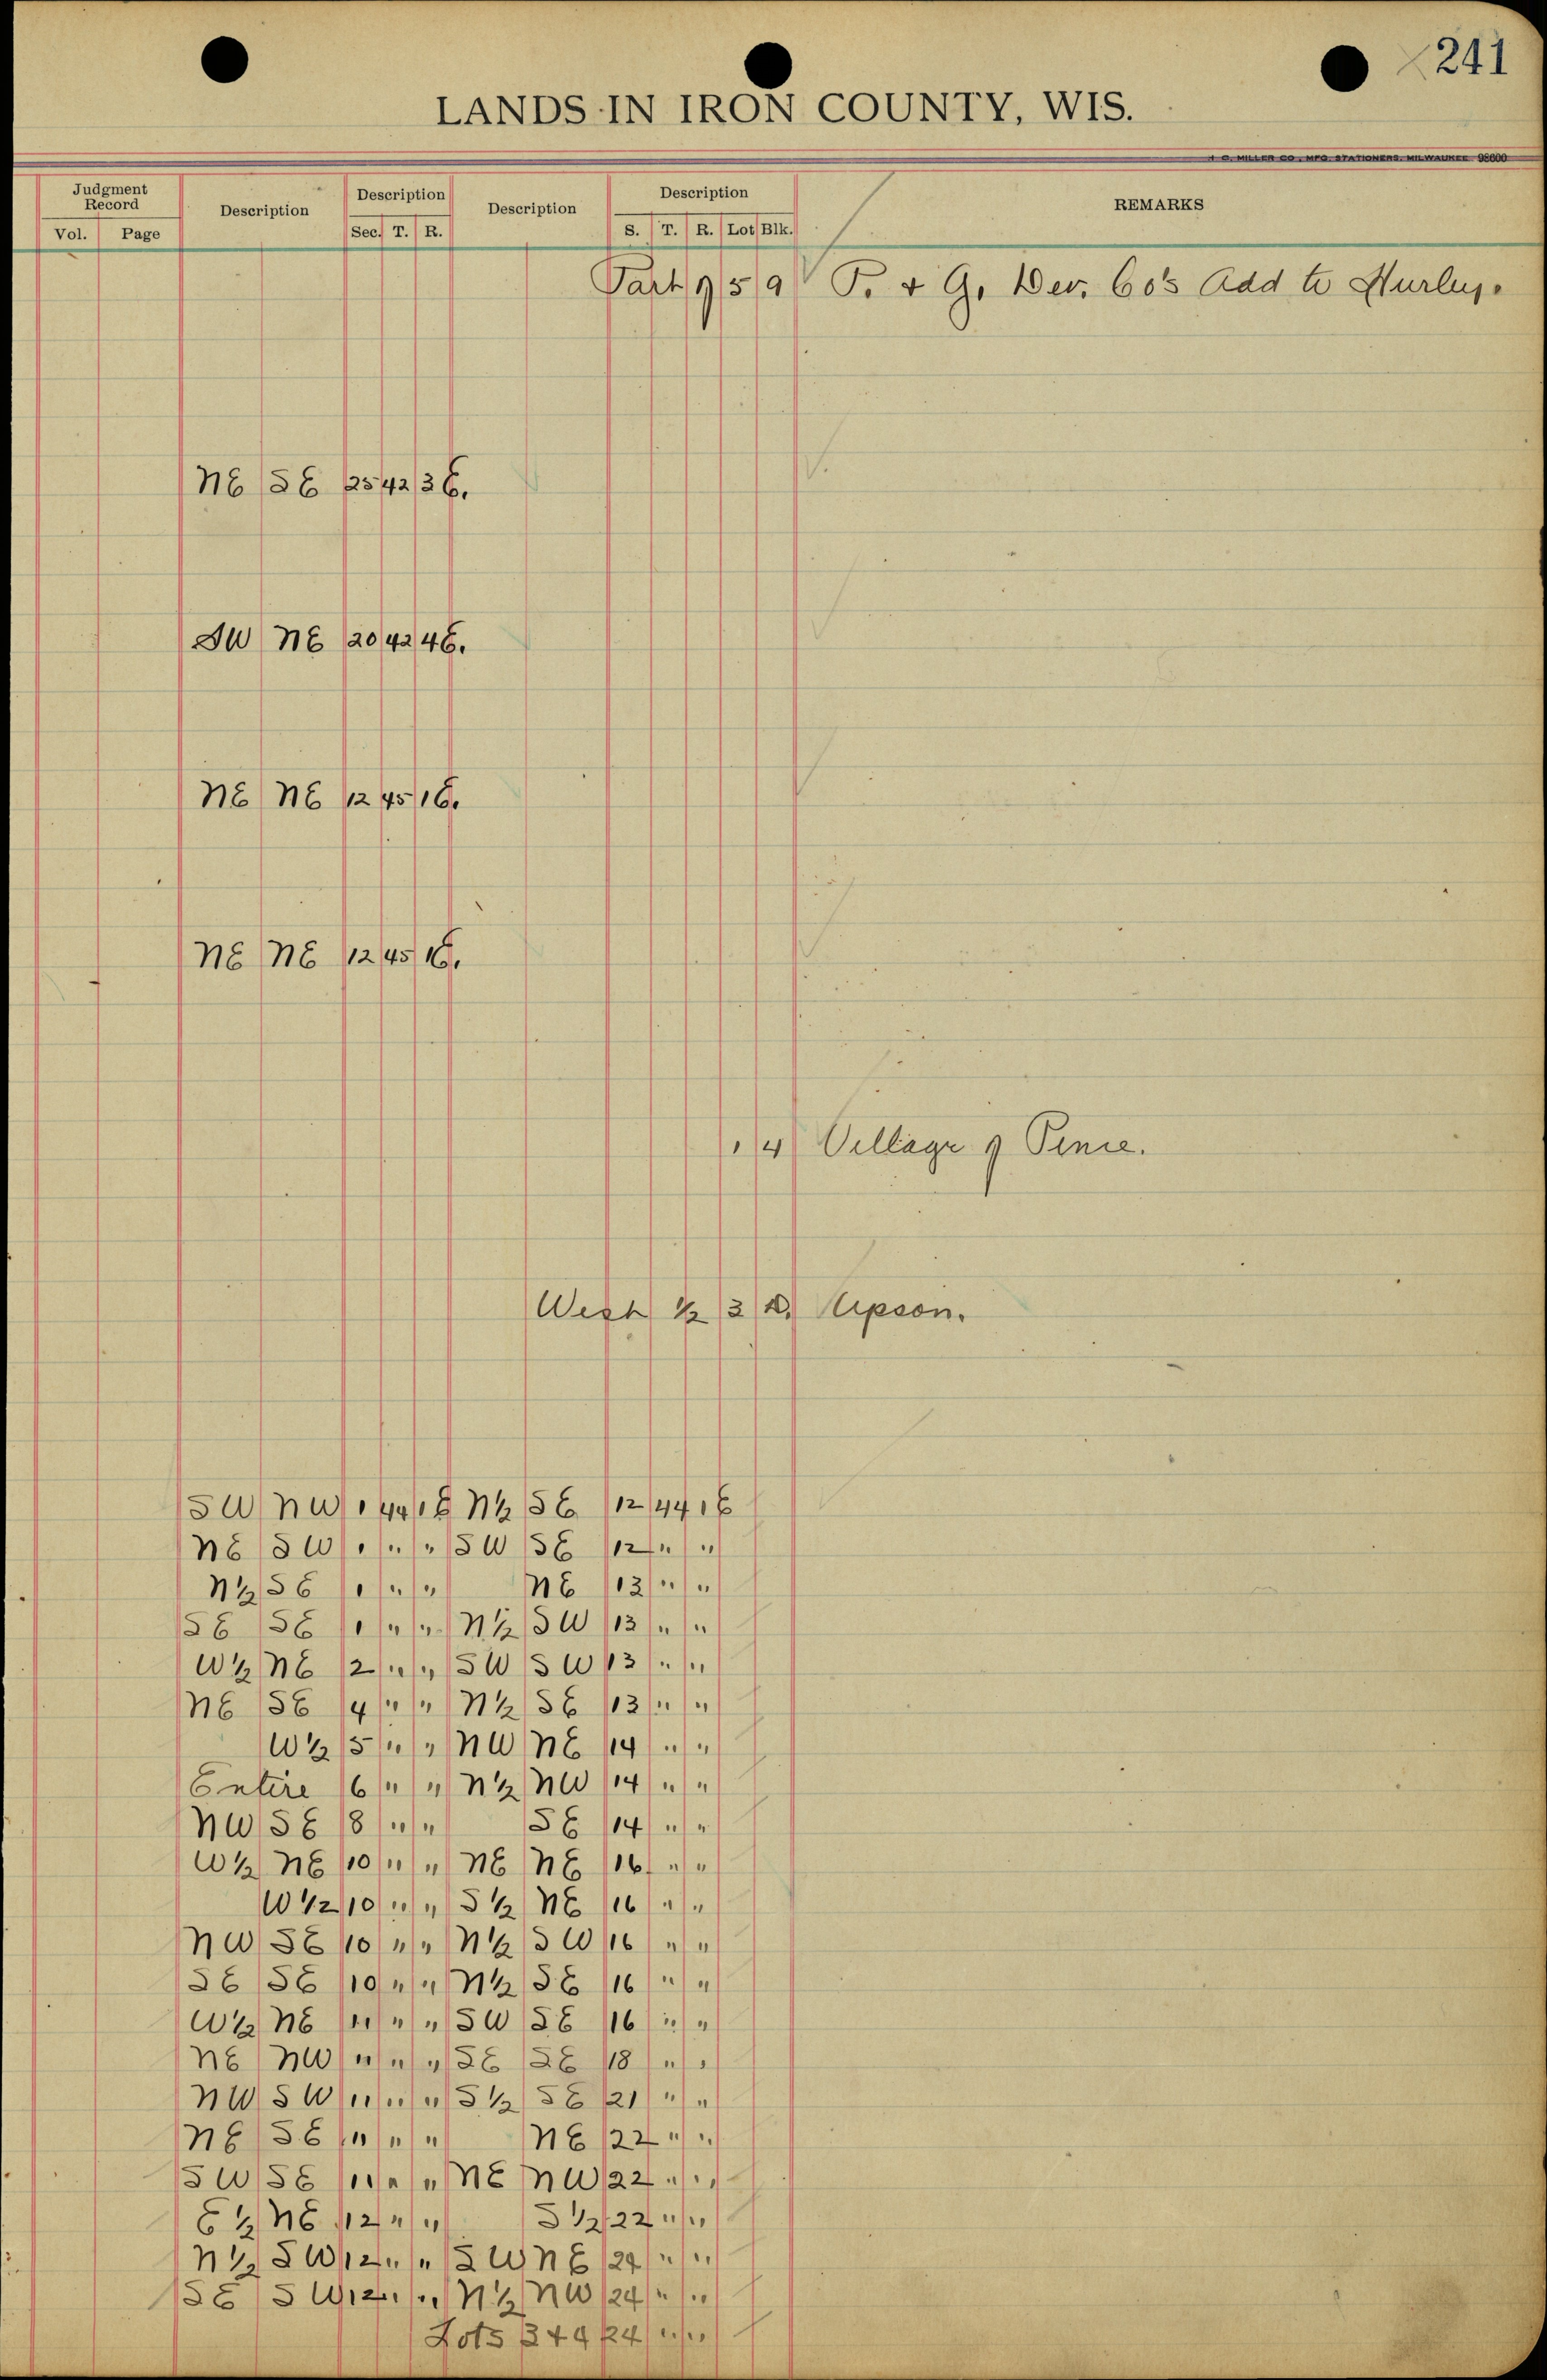 241
LANDS IN IRON COUNTY, WIS.
H. C. MILLER CO., MFG. STATIONERS, MILWAUKEE 98600
Judgment Record Description Description Description Description REMARKS
Vol. Page Sec. T. R. S. T. R. Lot Blk.
Part of 5 9 P. & G. Dev. Co's Add to Hurley.
NE SE 25 42 3 E.
SW NE 20 42 4 E.
NE NE 12 45 1 E.
NE NE 12 45 1 E.
1 4 Village of Pence.
West ½ 3 Upson.
SW NW 1 44 1 E N½ SE 12 44 1 E
NE SW 1 " " SW SE 12 " "
N½ SE 1 " " NE 13 " "
SE SE 1 " " N½ SW 13 " "
W½ NE 2 " " SW SW 13 " "
NE SE 4 " " N½ SE 13 " "
W½ 5 " " NW NE 14 " "
Entire 6 " " N½ NW 14 " "
NW SE 8 " " SE 14 " "
W½ NE 10 " " NE NE 16 " "
W½ 10 " " S½ NE 16 " "
NW SE 10 " " N½ SW 16 " "
SE SE 10 " " N½ SE 16 " "
W½ NE 11 " " SW SE 16 " "
NE NW 11 " " SE SE 18 " "
NW SW 11 " " S½ SE 21 " "
NE SE 11 " " NE 22 " "
SW SE 11 " " NE NW 22 " "
E½ NE 12 " " S½ 22 " "
N½ SW 12 " " SW NE 24 " "
SE SW 12 " " N½ NW 24 " "
Lots 3 + 4 24 " "